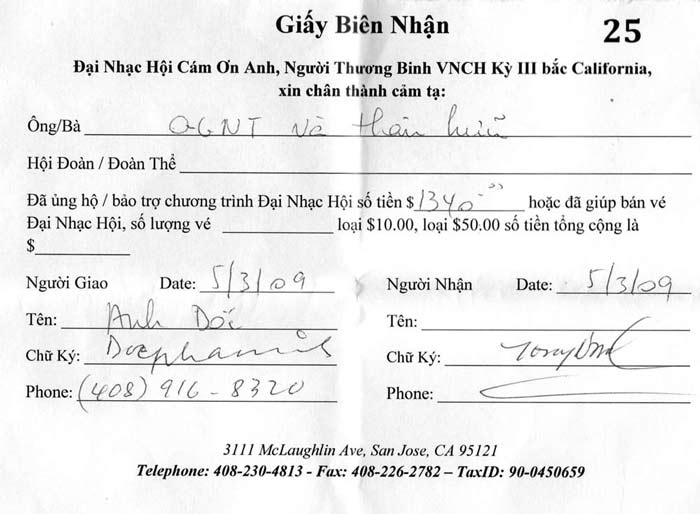 Giấy Biên Nhận 25
Đại Nhạc Hội Cám Ơn Anh, Người Thương Binh VNCH Kỳ III bắc California,
xin chân thành cảm tạ:
Ông/Bà QGNT và thân hữu
Hội Đoàn / Đoàn Thể
Đã ủng hộ / bảo trợ chương trình Đại Nhạc Hội số tiền $ 1340.00 hoặc đã giúp bán vé
Đại Nhạc Hội, số lượng vé loại $10.00, loại $50.00 số tiền tổng cộng là
$
Người Giao Date: 5/3/09 Người Nhận Date: 5/3/09
Tên: Anh Dốc Tên:
Chữ Ký: Chữ Ký:
Phone: (408) 916-8320 Phone:
3111 McLaughlin Ave, San Jose, CA 95121
Telephone: 408-230-4813 - Fax: 408-226-2782 – TaxID: 90-0450659